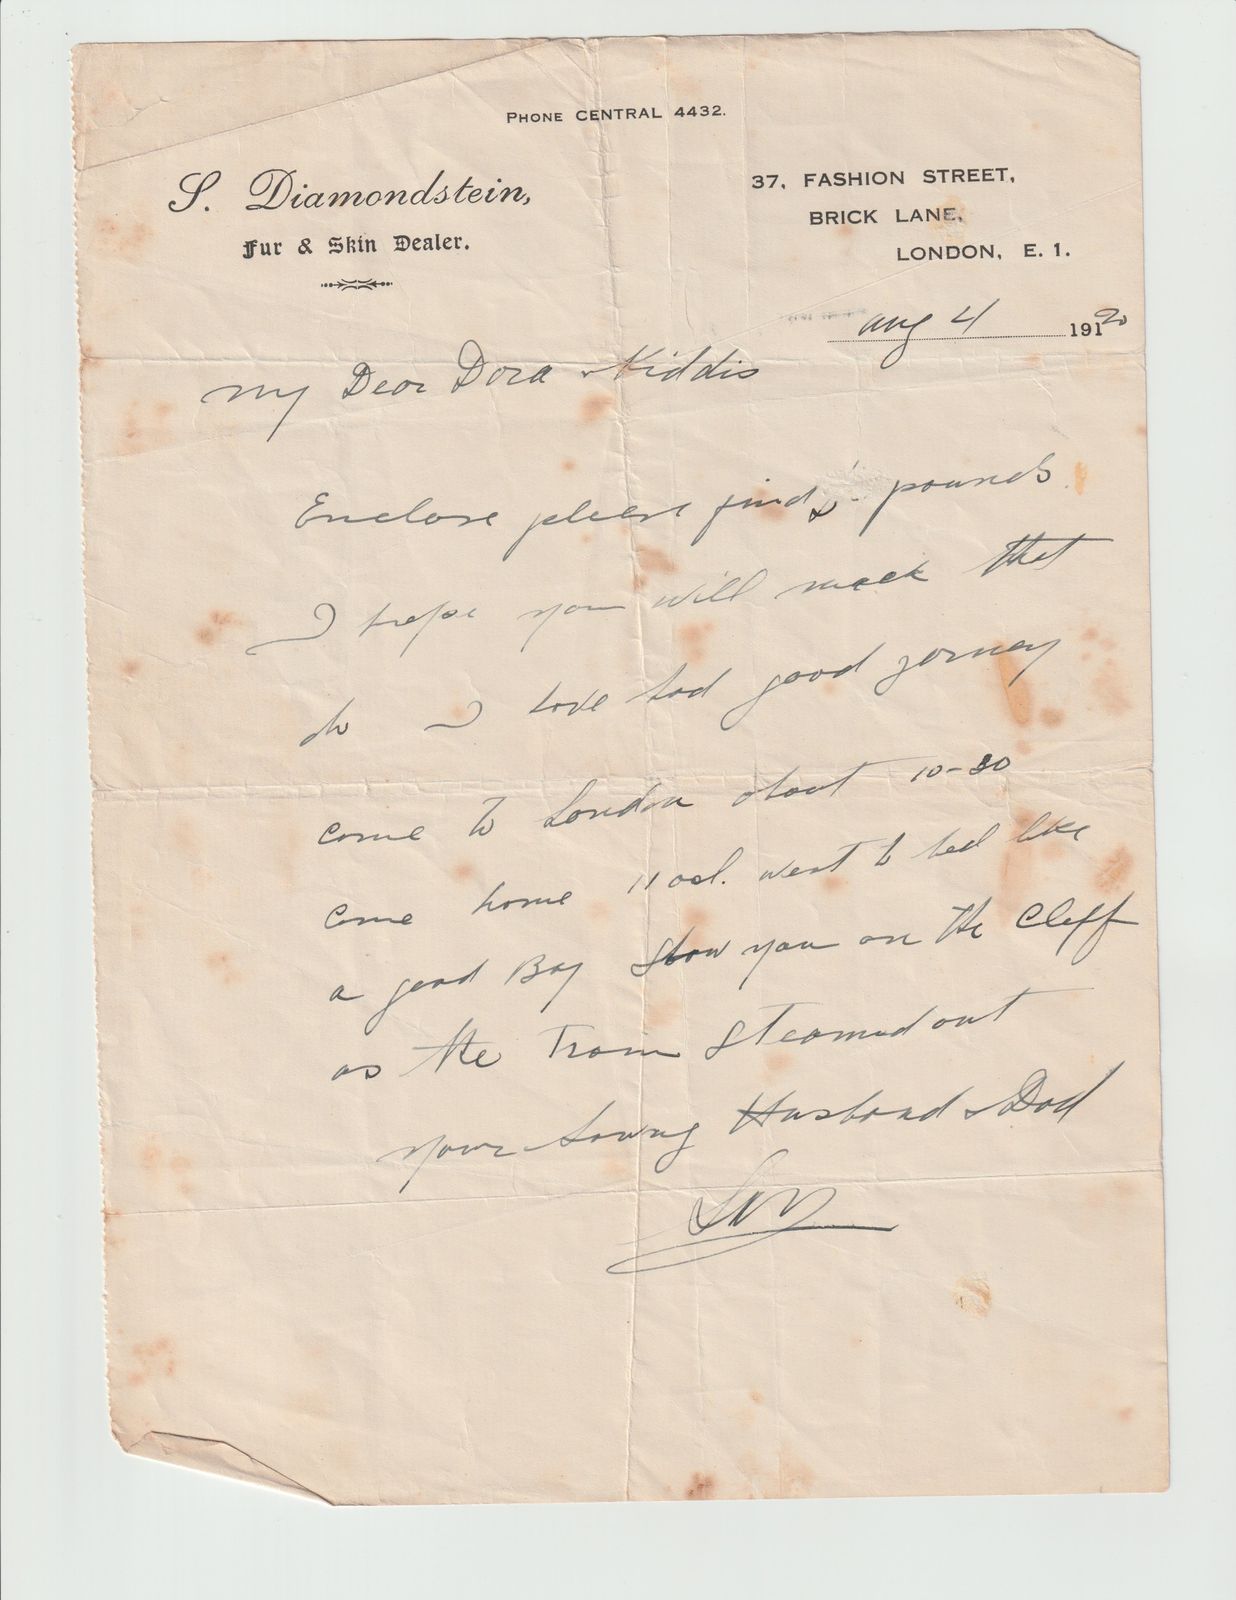 PHONE CENTRAL 4432.
S. Diamondstein,
Fur & Skin Dealer.
37, FASHION STREET,
BRICK LANE,
LONDON, E. 1.
Aug 4 1920
My Dear Dora & Kiddis
Enclose please find pounds
I hope you will that
do I have had good jorney
come to London about 10-30
come home 11 ocl. went to bed like
a good Boy Saw you on the Cleff
as the Train Steamed out
your loving Husband & Dad